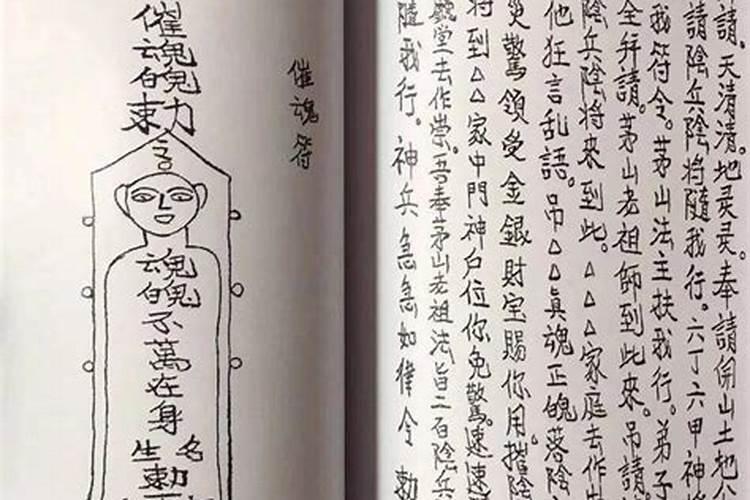 請。天清清。地灵灵。奉請開山土地公
請陰兵陰將隨我行。六丁六甲神將
我符令。茅山法主扶我行。弟子
全拜請。茅山老祖師到此來。吊請
陰兵陰將来到此。△△△家庭去作
他狂言乱語。吊△△真魂正魄落陰
災驚領受金銀財宝賜你用。摧陰
将到△△家中門神户位你免驚。速速
堂去作祟。吾奉茅山老祖法旨二百陰兵
隨我行。神兵急急如律令 勅
催魂符
催魂魄勅
魂魄不萬在身
名
生
勅